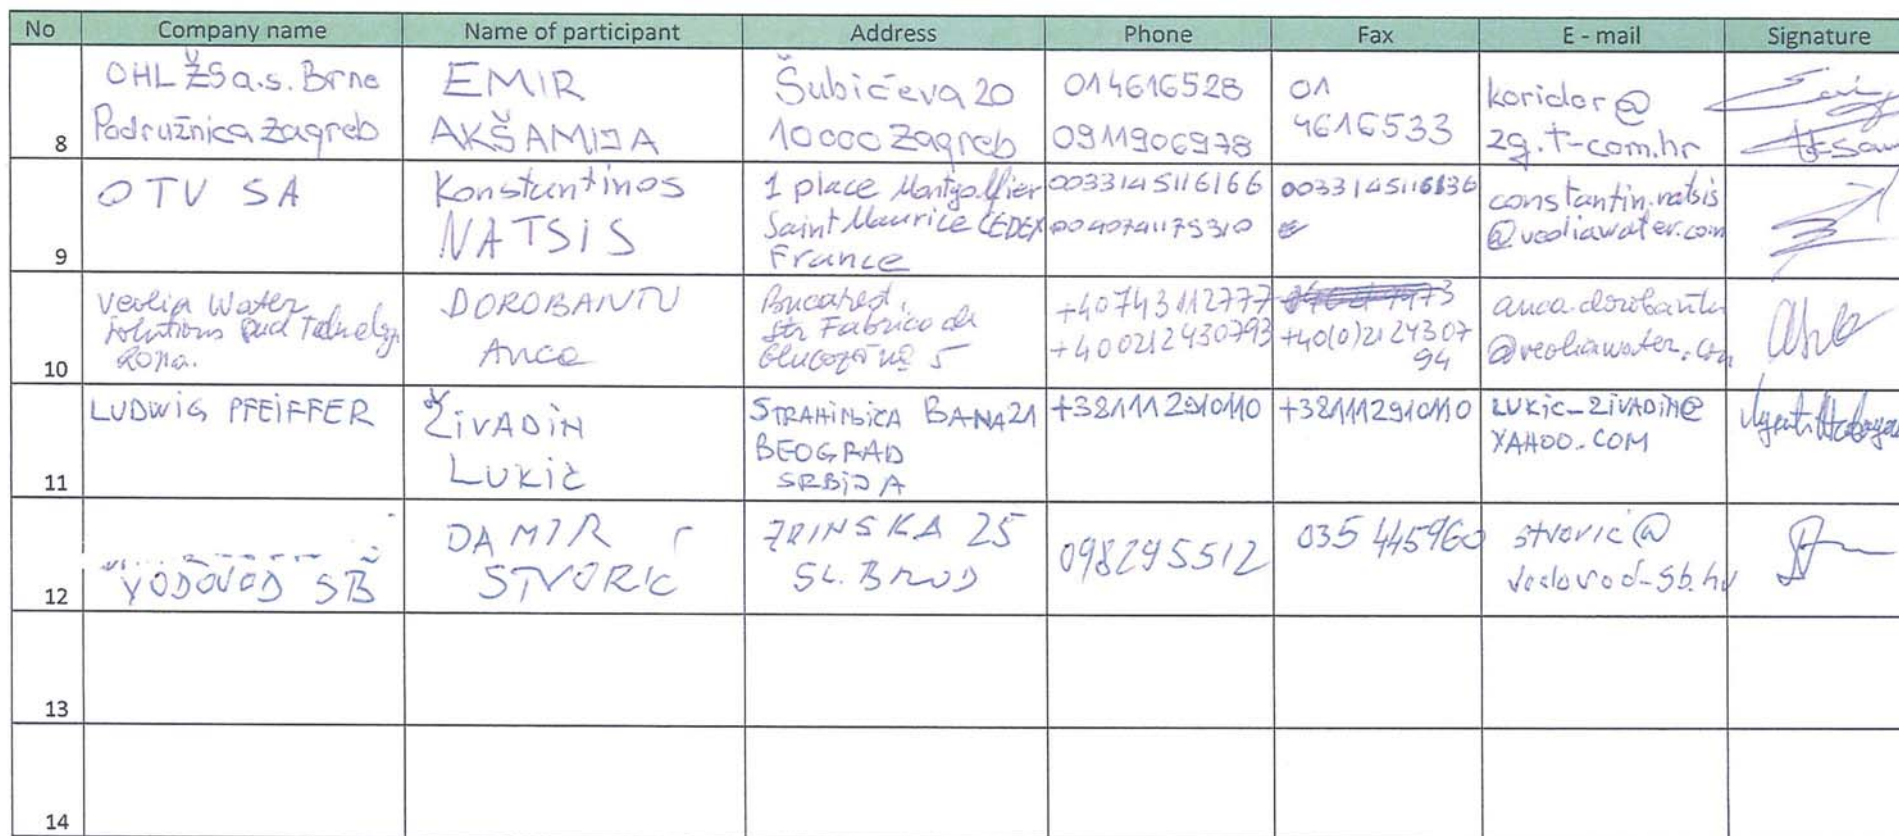 No Company name Name of participant Address Phone Fax E - mail Signature
8
OHL ŽS a.s. Brno
Podružnica Zagreb
EMIR
AKŠAMIJA
Šubićeva 20
10000 Zagreb
014616528
0911906978
01
4616533
koridor@
zg.t-com.hr
9
OTV SA
Konstantinos
NATSIS
1 place Montgolfier
Saint Maurice CEDEX
France
0033145116166
0040741175310
0033145116136
constantin.natsis
@veoliawater.com
10
Veolia Water
Solutions and
DOROBANTU
Anca
Bucarest,
str Fabrica de
5
+40743112777
+400212430793
+40(0)2124307
94
anca.dorobantu
@veoliawater.com
11
LUDWIG PFEIFFER
ŽIVADIN
LUKIĆ
BANA 21
BEOGRAD
SRBIJA
+381112910110
+381112910110
LUKIC_ZIVADIN@
YAHOO.COM
12
VODOVOD SB
DAMIR
STVORIC
ZRINSKA 25
SL. BROD
098295512
035 445960
stvoric@
vodovod-sb.hr
13
14